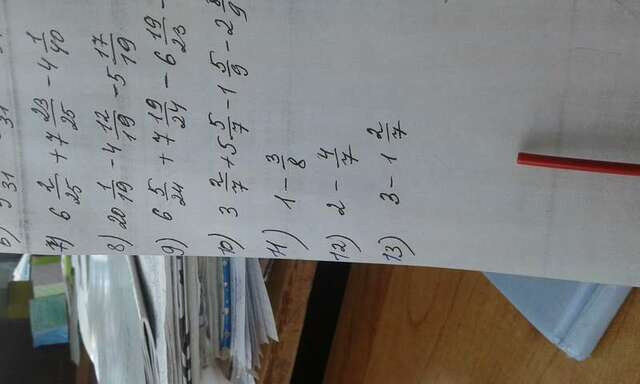 7) 6 2/25 + 7 23/25 - 4 1/40
8) 20 1/19 - 4 12/19 - 5 17/19
9) 6 5/24 + 7 19/24 - 6 19/23 -
10) 3 2/7 + 5 5/7 - 1 5/9 - 2 8/9
11) 1 - 3/8
12) 2 - 4/7
13) 3 - 1 2/7